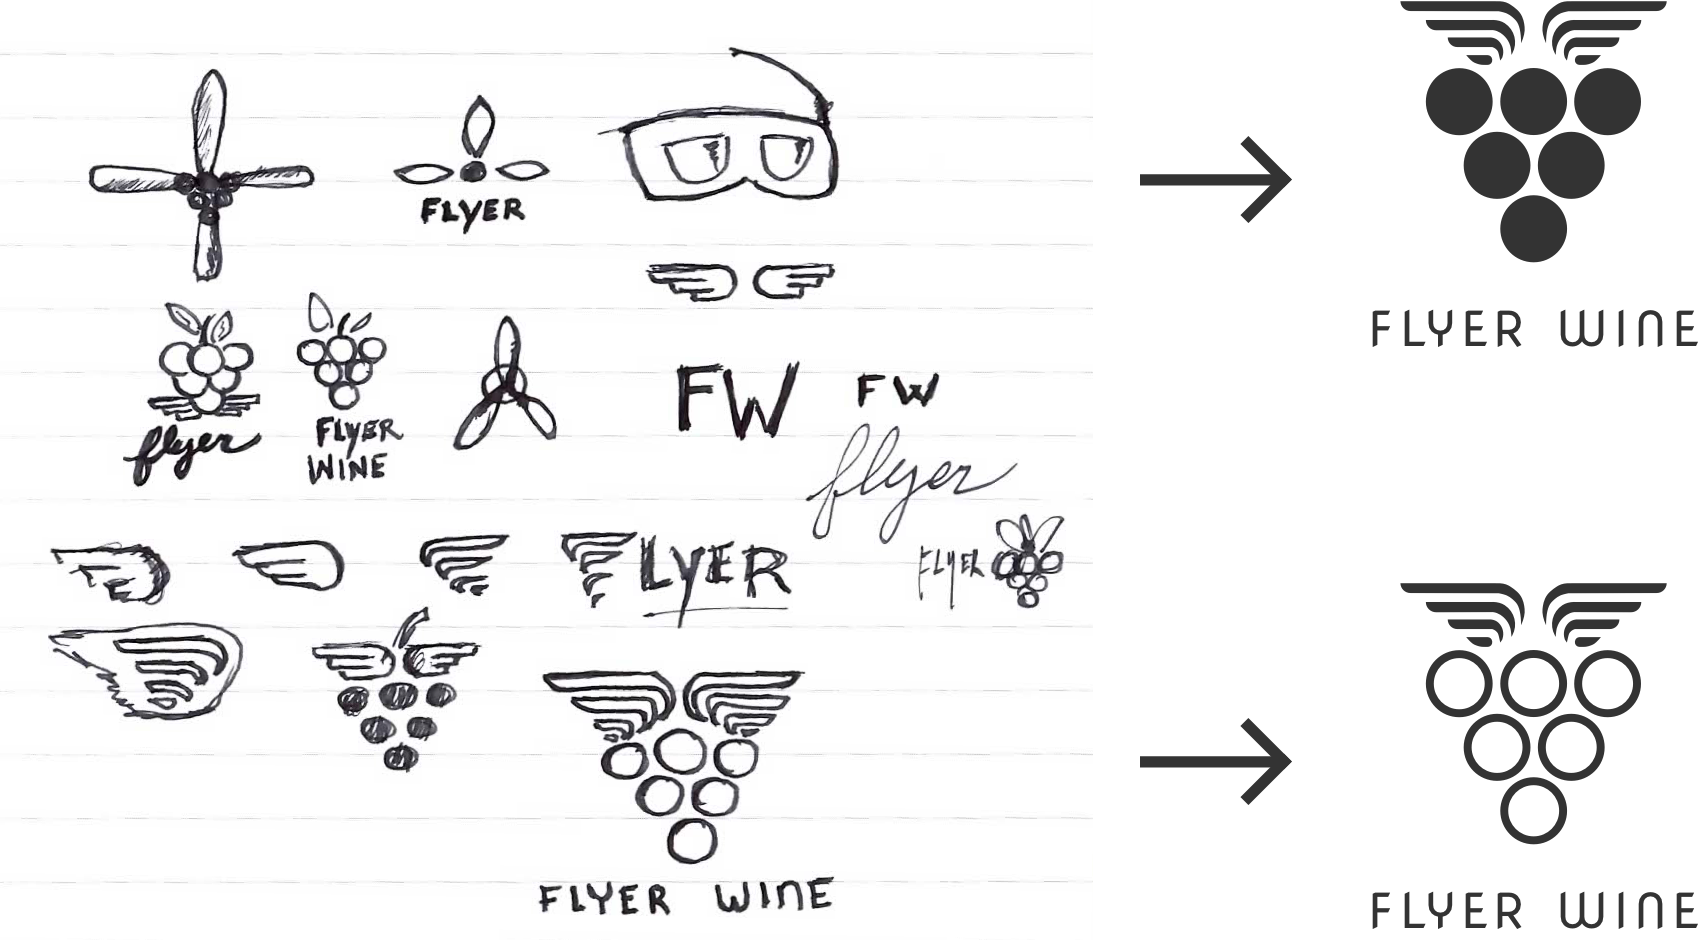 FLYER
flyer
FLYER
WINE
FW
FW
flyer
FLYER
FLYER
FLYER WINE
FLYER WINE
FLYER WINE